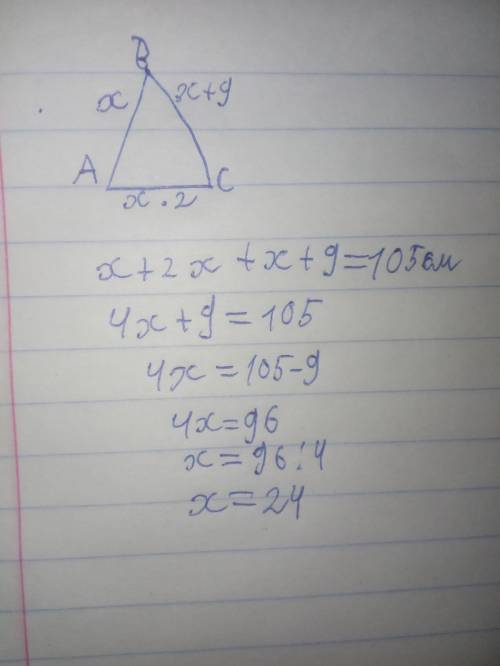 B
x
x+9
A
C
x · 2
x+2x+x+9=105см
4x+9=105
4x=105-9
4x=96
x=96:4
x=24